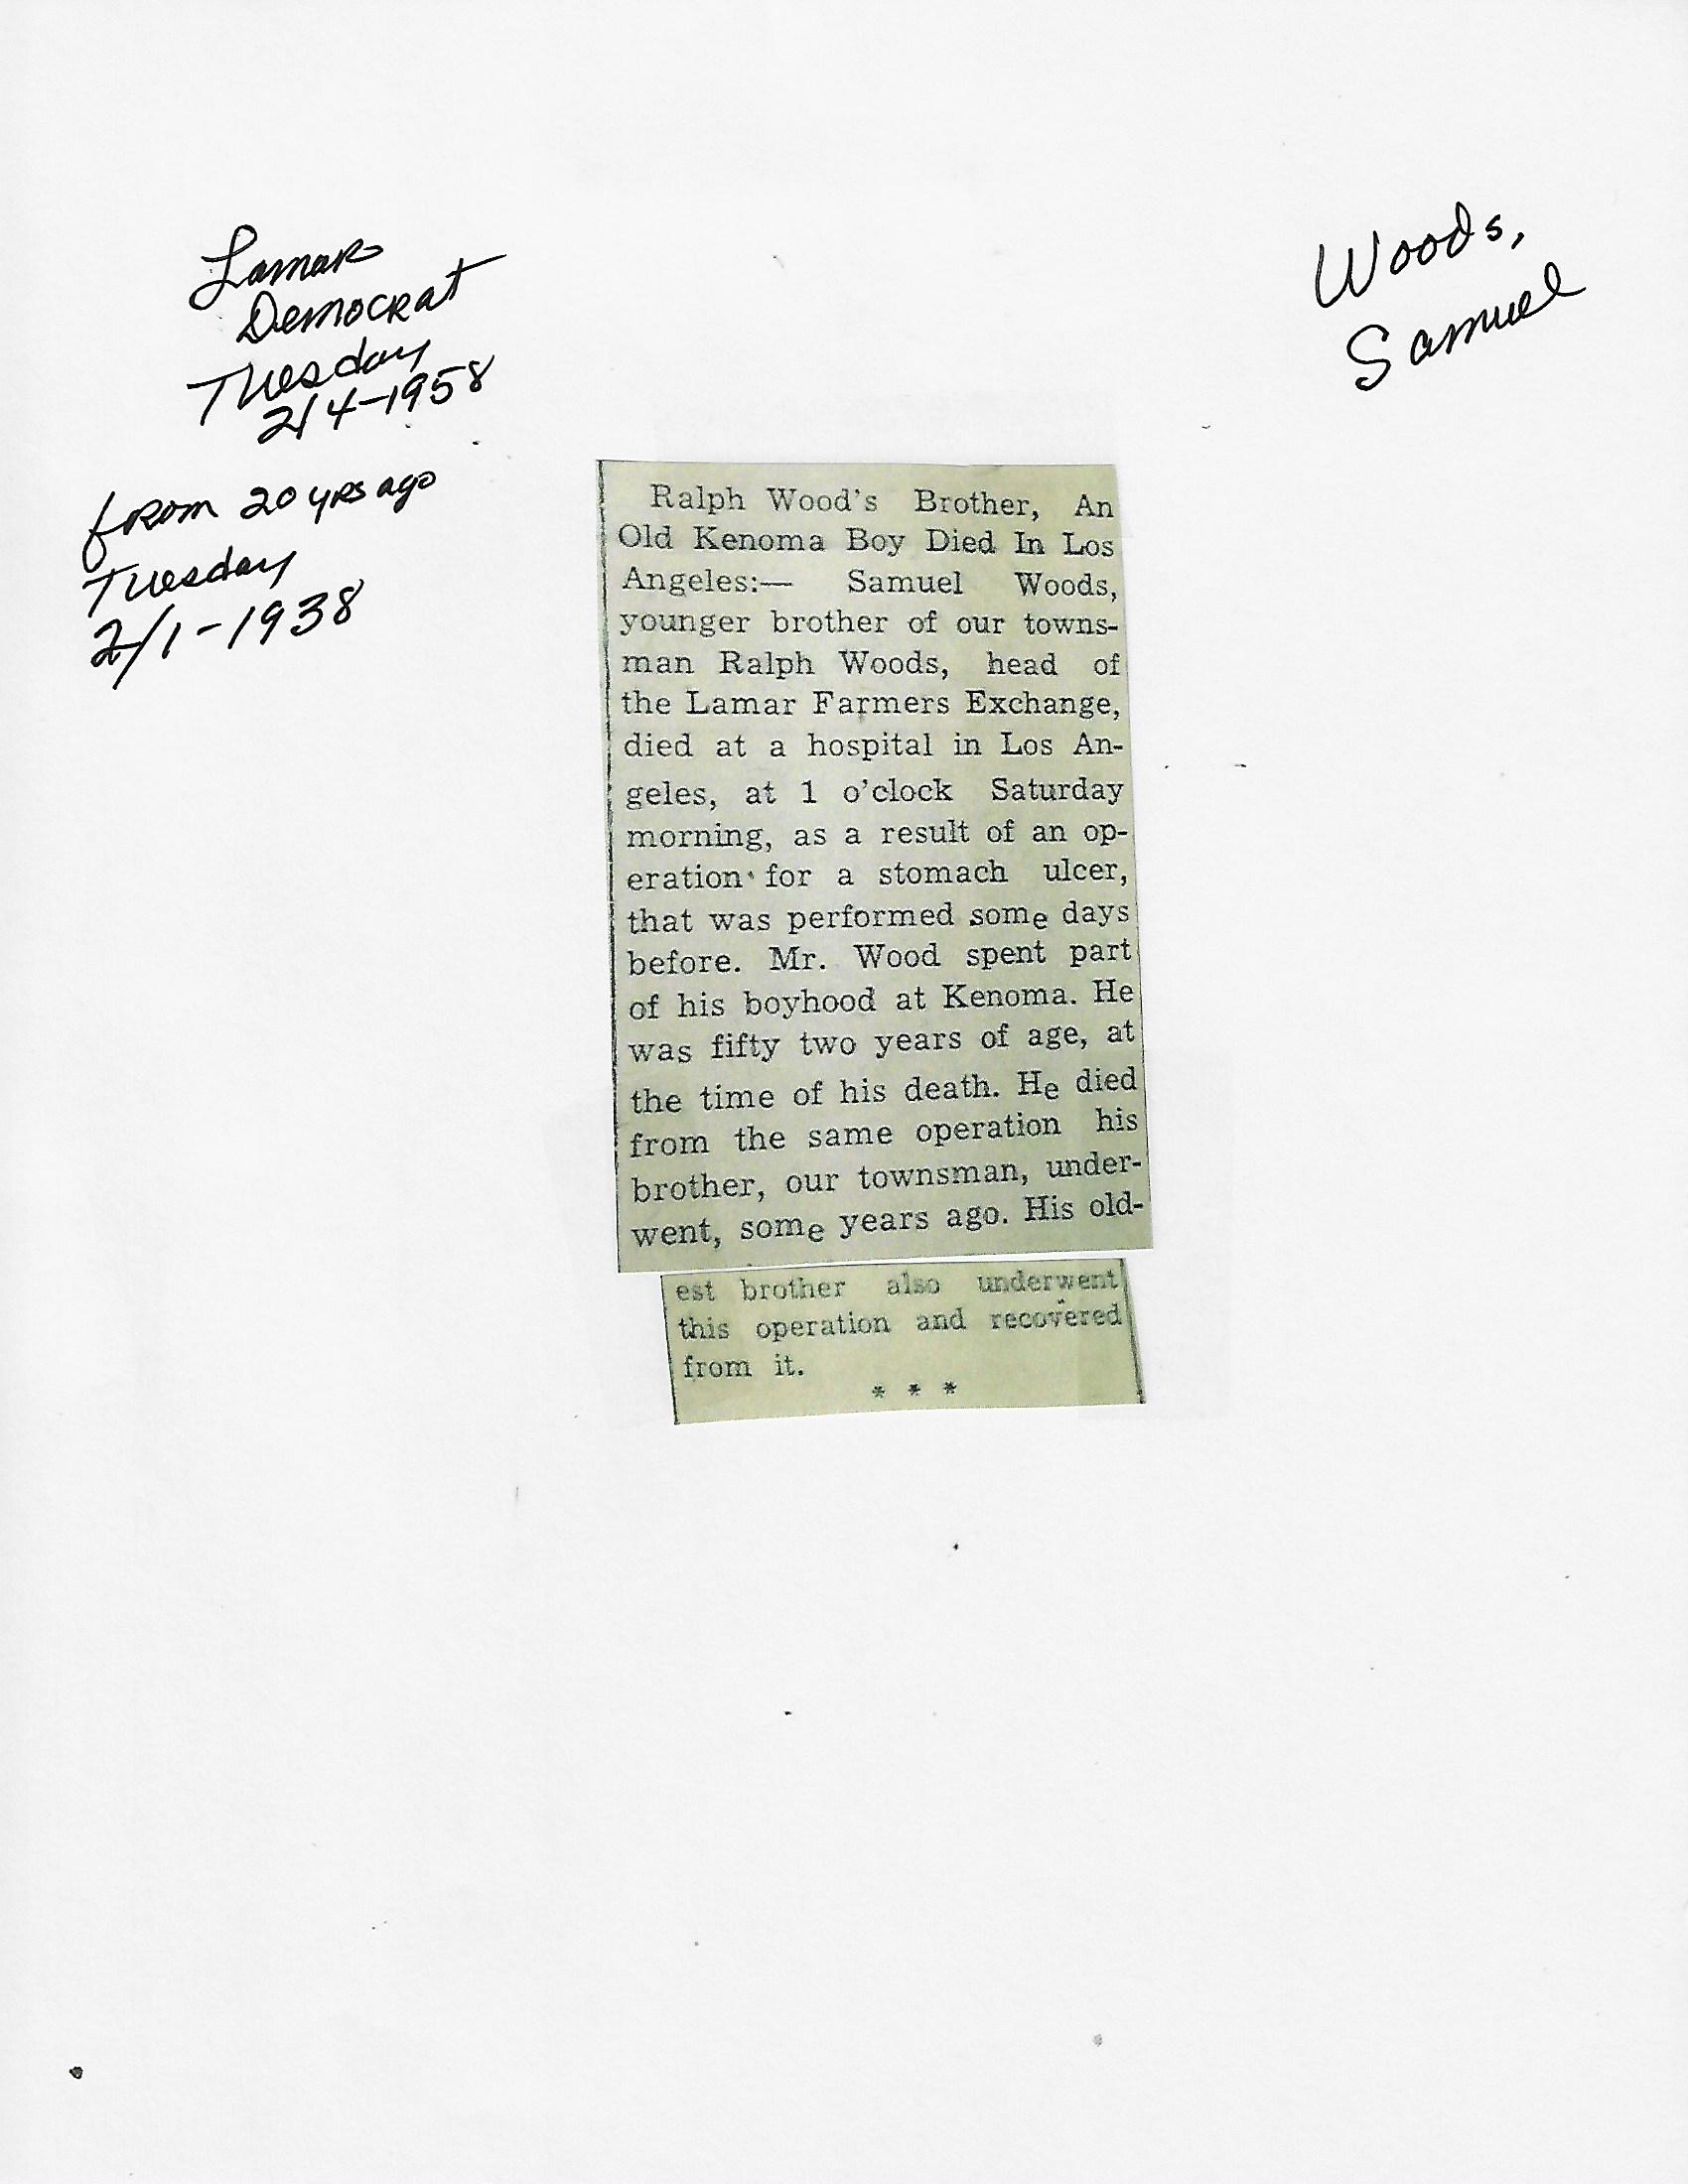 Lamar
Democrat
Tuesday
2/4-1958
from 20 yrs ago
Tuesday
2/1-1938
Woods,
Samuel
Ralph Wood's Brother, An
Old Kenoma Boy Died In Los
Angeles:— Samuel Woods,
younger brother of our towns-
man Ralph Woods, head of
the Lamar Farmers Exchange,
died at a hospital in Los An-
geles, at 1 o'clock Saturday
morning, as a result of an op-
eration for a stomach ulcer,
that was performed some days
before. Mr. Wood spent part
of his boyhood at Kenoma. He
was fifty two years of age, at
the time of his death. He died
from the same operation his
brother, our townsman, under-
went, some years ago. His old-
est brother also underwent
this operation and recovered
from it.
* * *